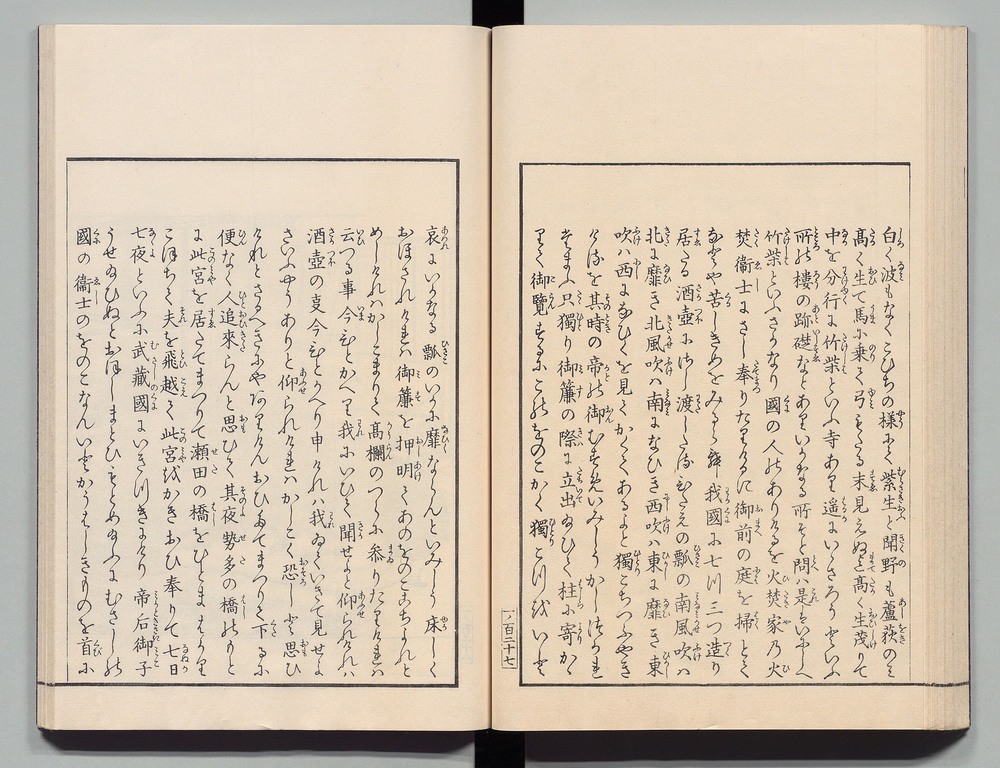 白く波もなくこひちの様にて紫生と聞野も蘆荻のミ
髙く生て馬に乗て弓もたる末見えぬまて髙く生茂りて
中を分行に竹柴といふ寺あり遥に といふ
所の樓の跡礎なとありいかなる所そと問ハ是はいにしへ
竹柴といふさかなり國の人のありけるを火焚家乃火
焚衞士にさし奉りたりけるに御前の庭を掃とて
なとや苦しきめをみるらん我國に七つ三つ造り
居たる酒壺にさし渡したるひたえの瓢の南風吹ハ
北に靡き北風吹ハ南になひき西吹ハ東に靡き東
吹ハ西になひくを見てかくてあるよと獨こちつふやき
けるを其時の帝の御むすめいみしうかしつかれ
給ふ只獨り御簾の際に立出給ひて柱に寄かゝ
りて御覽するにこのをのこかく獨こつをいと
一ノ百二十七
哀にいかなる瓢のいかに靡ならんといみしう床しく
おほされけれハ御簾を押明てあのをのここちよれと
めしけれハかしこまりて髙欄のつらに參りたりけれハ
云つる事今ひとかへり我にいひて聞せよと仰られけれハ
酒壺の亊今ひとかへり申けれハ我ゐていきて見せよ
さいふやうありと仰られけれハかしこく恐しと思ひ
けれとさるへきにやありけんおひたてまつりて下るに
便なく人追來らんと思ひて其夜勢多の橋のもと
に此宮を居たてまつりて瀬田の橋をひとまはかり
こほちて夫を飛越て此宮をかきおひ奉りて七日
七夜といふに武藏國にいきつきにけり帝后御子
うせ給ひぬとおほしまとひもとめ給ふにむさしの
國の衞士のをのこなんいとかうはしきものを首に